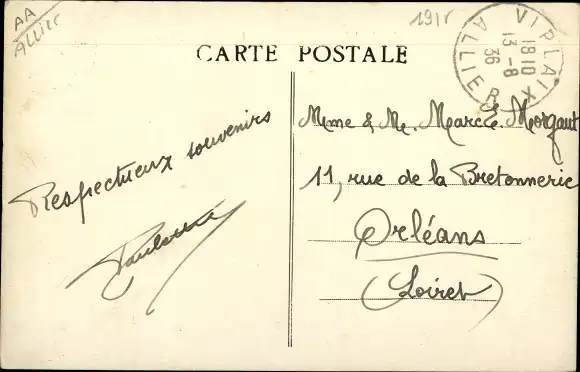 AA
ALLIER
1915
VIPLAIX
18 10
13 -8
36
ALLIER
CARTE POSTALE
Respectueux souvenirs
Paulette
Mme & Mr. Marcel Morgaut
11, rue de la Bretonnerie
Orléans
(Loiret)